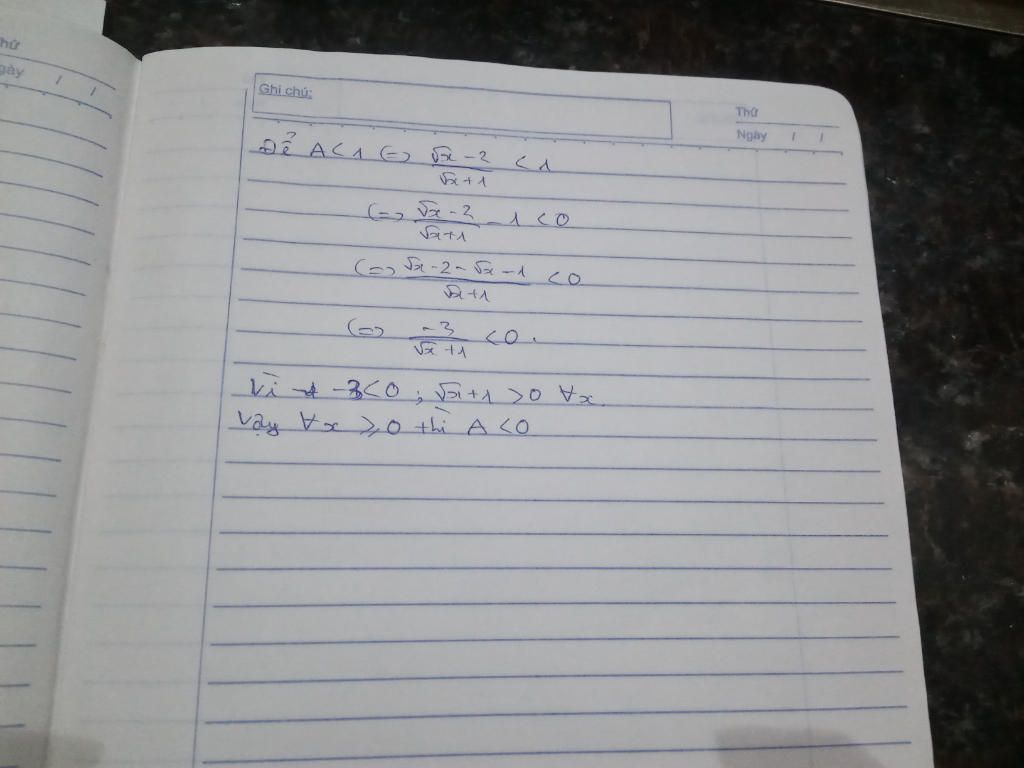 hứ
gày / /
Ghi chú:
Thứ
Ngày / /
Để A < 1 (=) (√x - 2)/(√x + 1) < 1
(=) (√x - 2)/(√x + 1) - 1 < 0
(=) (√x - 2 - √x - 1)/(√x + 1) < 0
(=) -3/(√x + 1) < 0.
Vì -3 < 0 ; √x + 1 > 0 ∀x.
Vậy ∀x ⩾ 0 thì A < 0